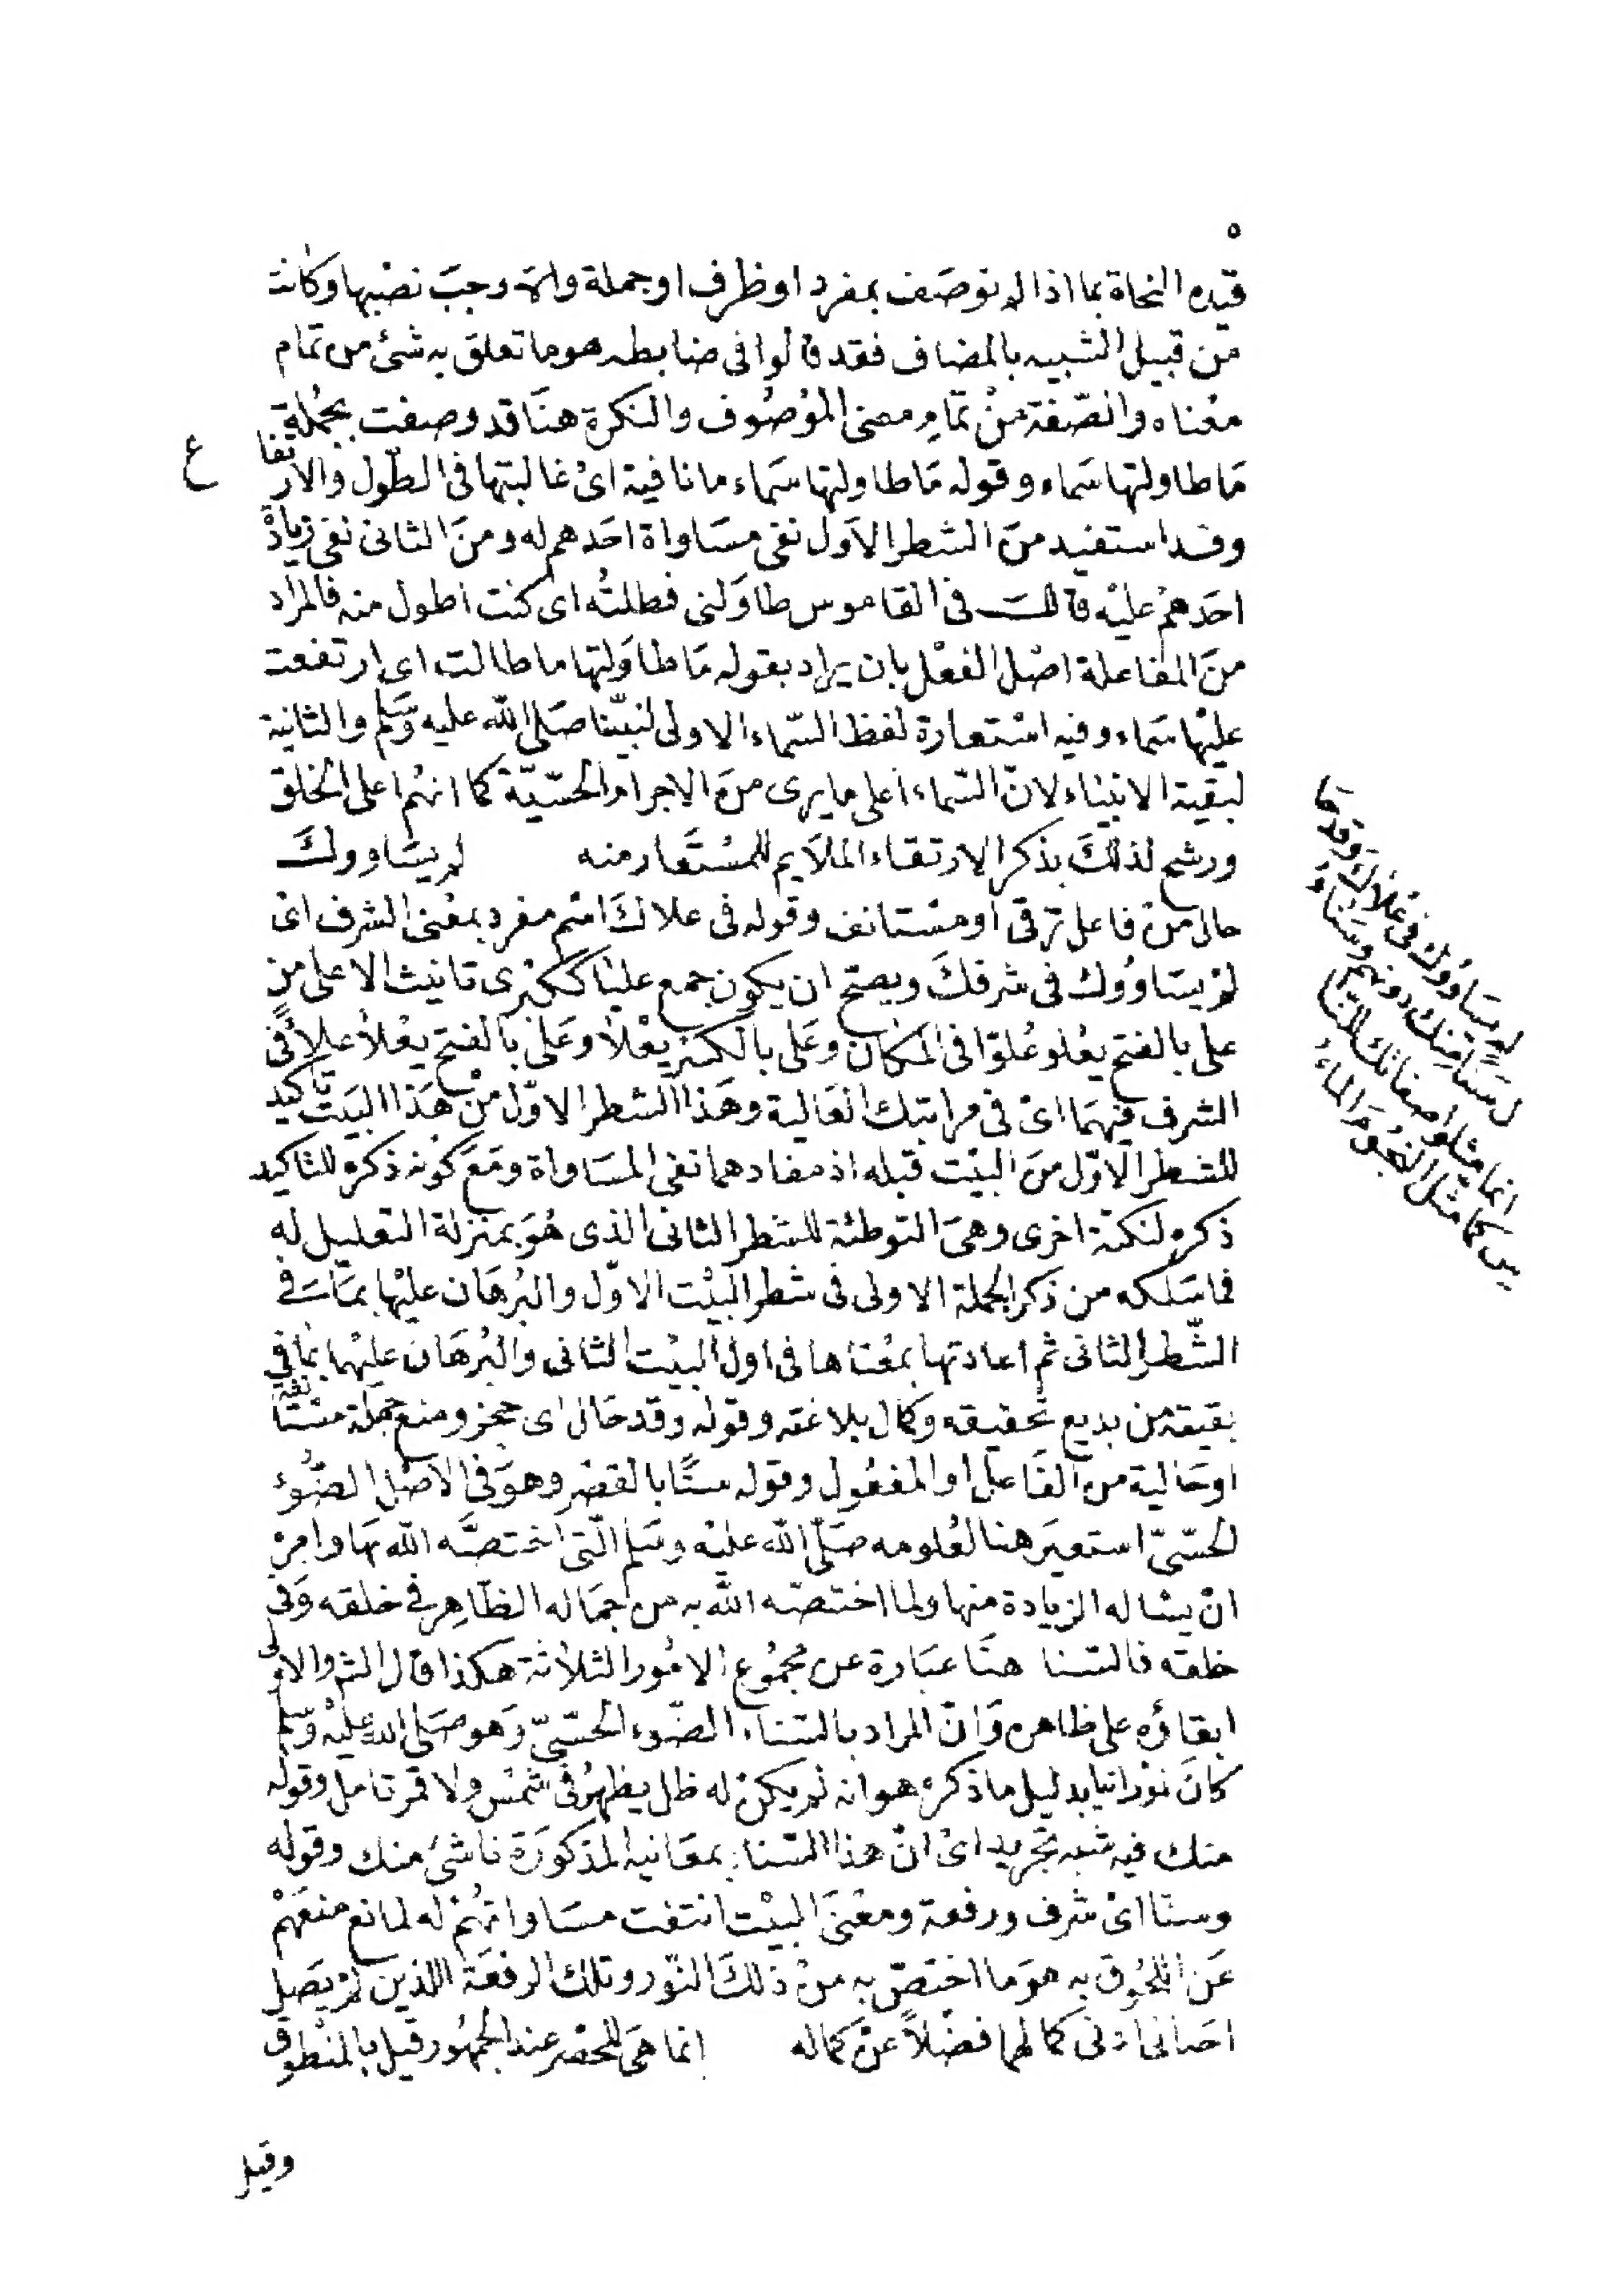 ٥
قيده النحاة بما اذا لم توصف بمفرد او ظرف او جملة والا وجب نصبها وكانت
من قبيل الشبيه بالمضاف فقد قالوا فى ضابطه هو ما تعلق به شئ من تمام
معناه والصّفة منْ تمامِ معنى الموْصُوف والنكرة هنَا قد وصفت بجُملة
مَا طاولتها سَماء وقوله مَا طاولتها سَماء ما نافية اىْ غالبتها فى الطّول والارتفاع
وقد استفيد منَ الشطر الاَول نفى مسَاواة احَدهم له ومنَ الثانى نفىَ زيادة
احَدهمْ عليْه قالــَ فى القاموس طاوَلنى فطلتُه اى كنت اطول منه فالمرَاد
منَ المفاعلة اصْل الفعْل بان يراد بقوله مَا طاوَلتها ما طالت اى ارتفعت
عليْها سَماء وفيه اسْتعارة لفظ السّماء الاولى لنبيّنا صَلى الله عليه وَسَلم والثانية
لبقية الانبيَاء لانّ السّماء اعلى ما يرى منَ الاجرام الحسّيّة كما انهُم اعلى الخلق
ورشح لذلكَ بذكر الارتقاء الملاَيم للمسْتَعار منه لم يسَاووكَ
حال منْ فاعل ترقى او مسْتانف وقوله فى علاكَ اسْم مفرد بمعْنى الشرف اىْ
لمْ يسَاوُوك فى شرفكَ ويصح ان يكون جمع عليَا ككبْرى تانيث الاعلى من
على بالفتح يعْلو عُلوّا فى المكان وعَلى بالكسْر يعْلاَ وعَلى بالفتح يعْلاُ علاءً فى
الشرف فيهمَا اىْ فى مراتبك العَالية وهَذا الشطر الاوّل منْ هَذا البيَت تأكيد
للشطر الاوّل منَ البيْت قبله اذ مفادهما نفى المسَاواة ومَعَ كوْنه ذكره للتاكيد
ذكره لنكتة اخرى وهىَ التوطئة للشطر الثانى الذى هُوَ بمنزلة التعليل له
فما سَلكه من ذكر الجملة الاولى فى شطر البيْت الاوّل والبُرهَان عليْها بمَا فى
الشّطر الثانى ثم اعادتها بمعْناها فى اول البيْت الثانى والبُرهَان عليْها بمَا فى
بقيته من بديع تحقيقه وكمال بلاغته وقوله وقد حَال اى حجز ومنع جمْلة مسْتانفة
اوحَالية من الفَاعل او المفعُول وقوله سنًا بالقصْر وهوَ فى الاَصْل الضّوُء
الحسّىّ استعيرَ هنا لعُلومه صَلى الله عليْه وسَلم الّتى اختصّه الله بهَا وامِرْ
انْ يسْاله الزيادة منها ولما اختصّه الله به من جمَاله الظّاهِر فى خلقه وَفى
خلقه فالسّنا هنَا عبَارة عن مجمُوع الامُور الثلاَثة هكذا قال الشم والاولى
ابقاؤه على ظاهره وَانّ المراد بالسّناء الضّوء الحسّىّ وَهو صَلى الله عليْه وَسَلم
كانَ نوْرانيا بدليل ما ذكره هو انه لم يكنْ له ظل يظهرُ فى شمْس ولا قمر تامل وقوله
منك فيه شبه تجريد اىْ انّ هذا السّنا بمعَانيه المذكورَة ناشئ منك وقوله
وسنَا اىْ شرف ورفعة ومعْنىَ البيْت انتفت مسَاواتهُمْ له لمانع منعَهمْ
عَن اللّحُوق به هوَ ما اختصّ به منْ ذلكَ النّور وتلك الرفعَة اللذين لمْ يَصل
احَد الى ادنى كمالهما فضْلاً عنْ كماله انما هىَ للحَصْر عند الجمهُور قيل بالمنْطوق
وقيل
لم يسَاوُوك فى عُلاَكَ وَقد حَا
ل سَنًا مِنكَ دونهم وسَنَاءُ
انما مثلوا صفاتك للنا
س كما مثل النجُومَ الماءُ